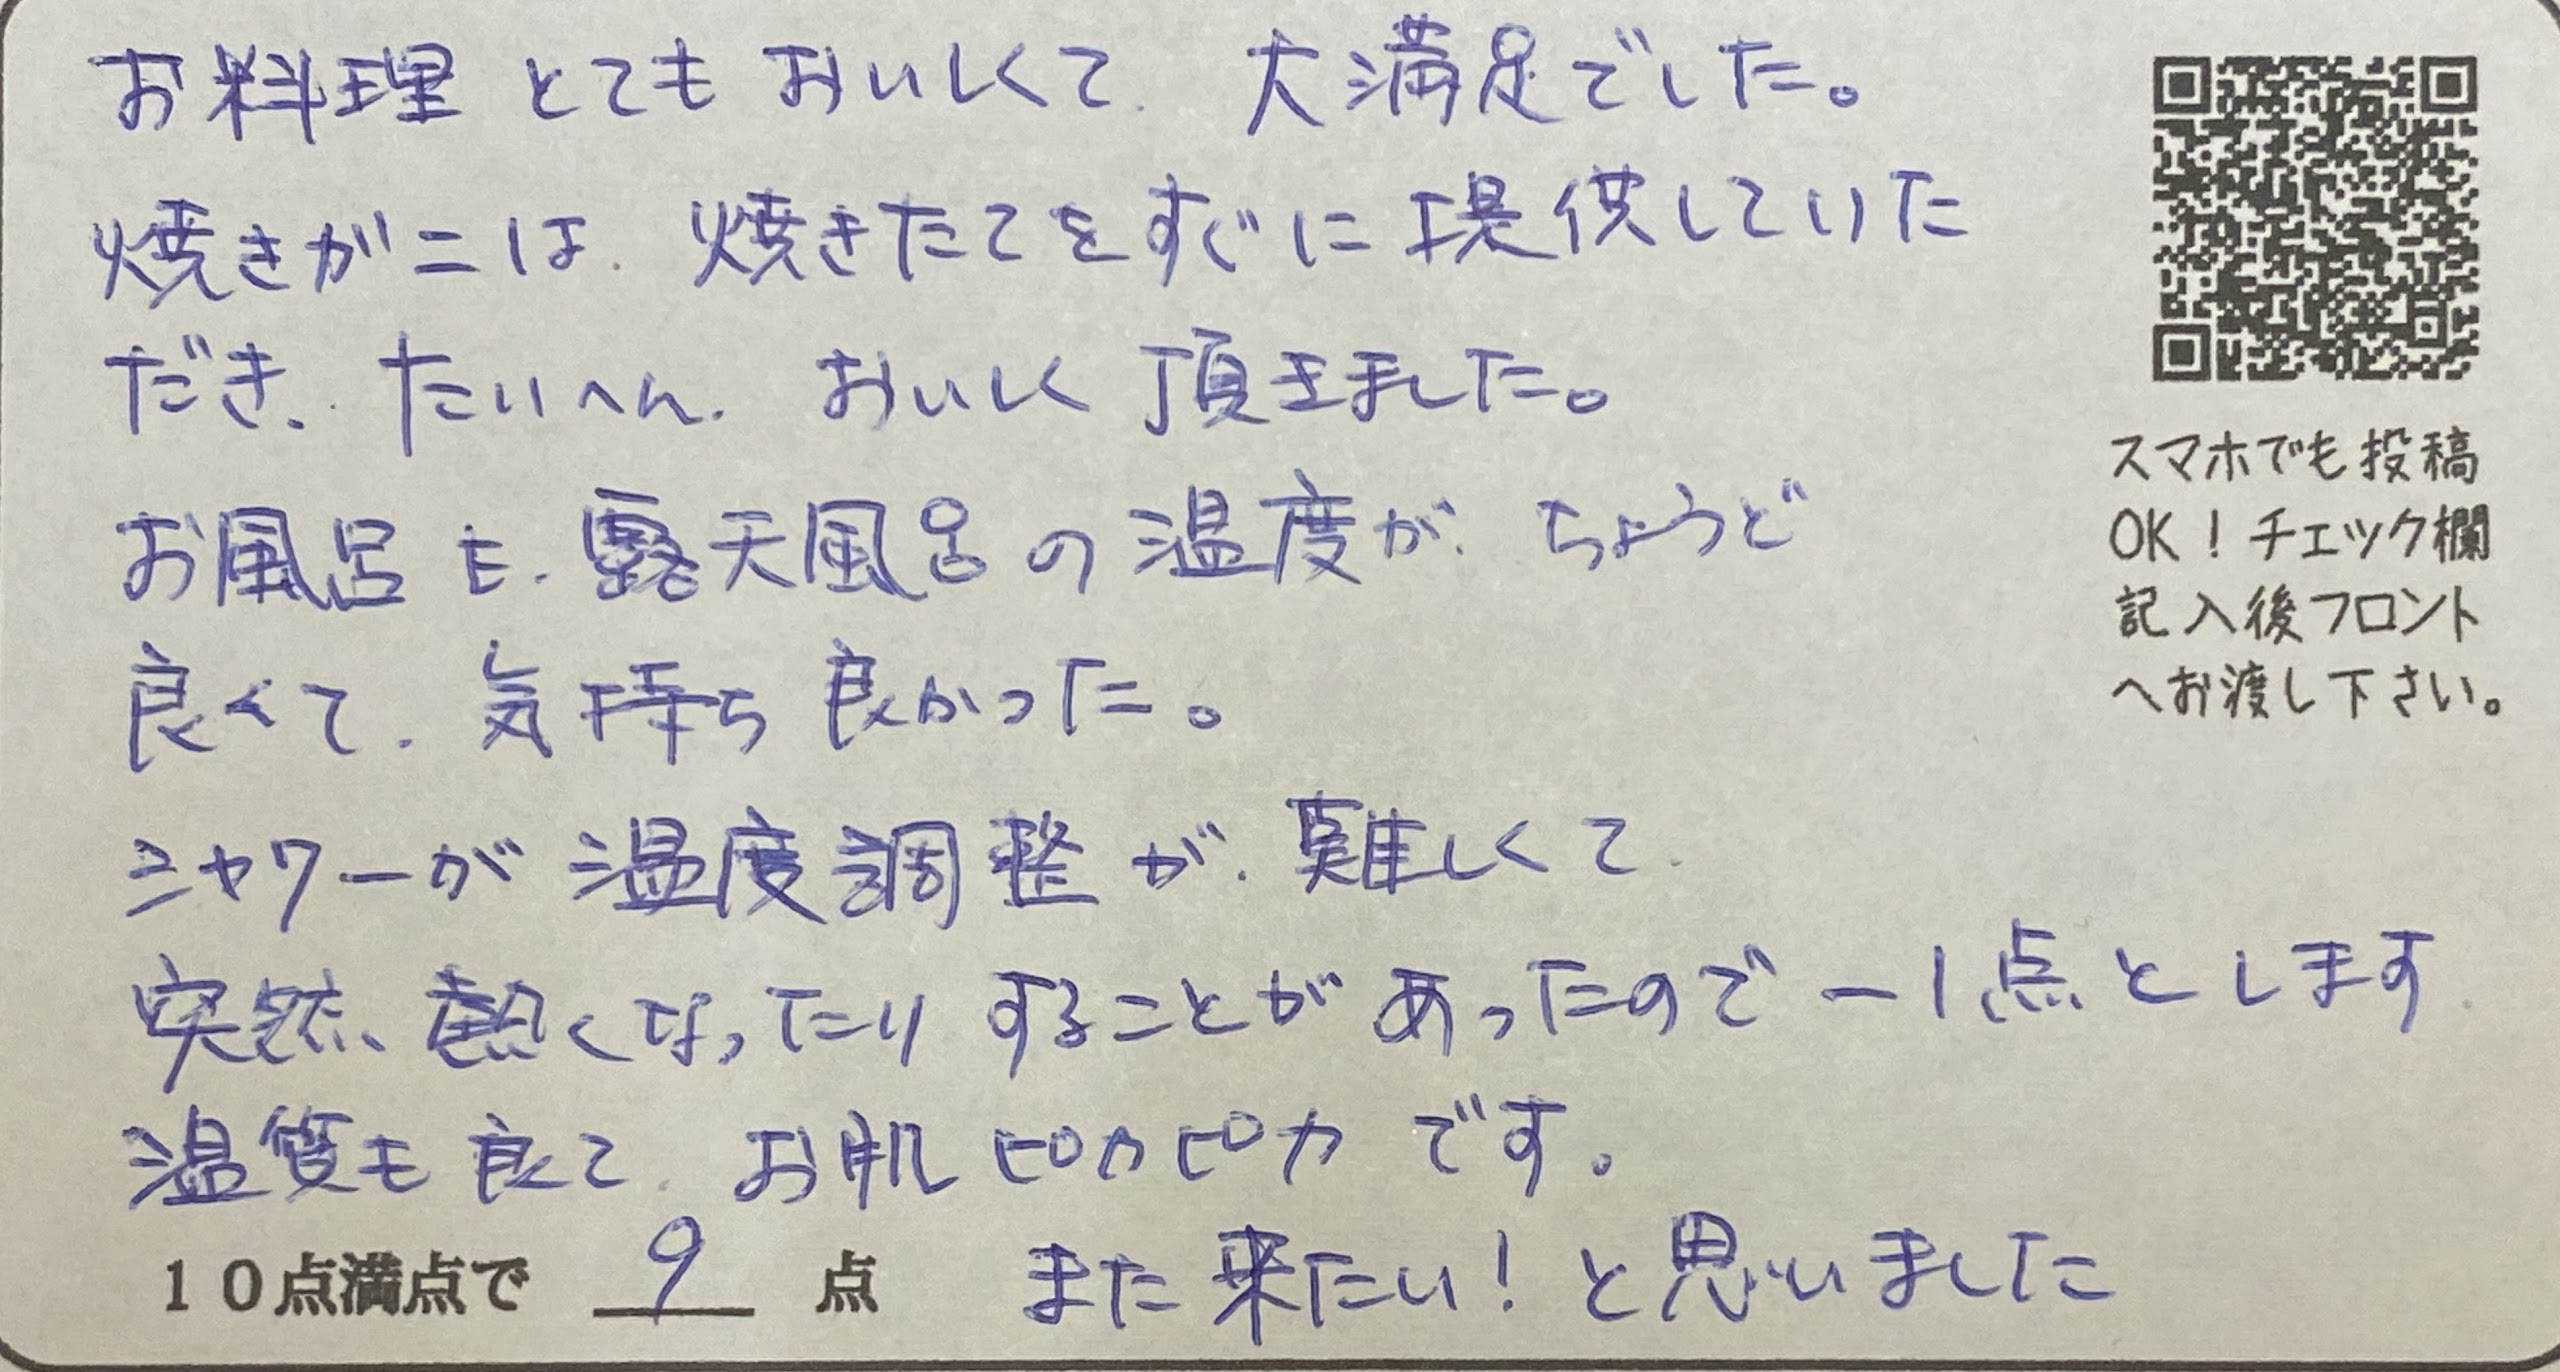 お料理 とても おいしくて、大満足でした。
焼きがニは、焼きたてをすぐに提供していた
だき、たいへん、おいしく頂きました。
お風呂も、露天風呂の温度が、ちょうど
良くて、気持ち良かった。
シャワーが温度調整が、難しくて、
突然、熱くなったりすることがあったので −1点とします
温質も良て、お肌ピカピカです。
10点満点で 9 点 また来たい！と思いました
スマホでも投稿
OK！チェック欄
記入後フロント
へお渡し下さい。